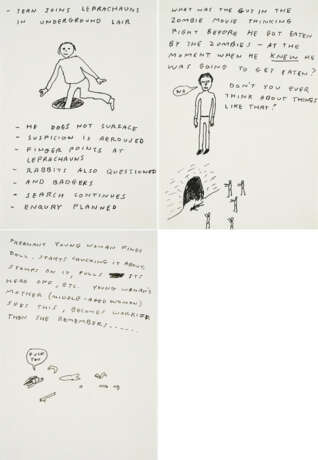 - SEAN JOINS LEPRACHAUNS
IN UNDERGROUND LAIR
- HE DOES NOT SURFACE
- SUSPICION IS AEROUSED
- FINGER POINTS AT
LEPRACHAUNS
- RABBITS ALSO QUESTIONED
- AND BADGERS
- SEARCH CONTINUES
- ENQURY PLANNED
WHAT WAS THE GUY IN THE
ZOMBIE MOVIE THINKING
RIGHT BEFORE HE GOT EATEN
BY THE ZOMBIES - AT THE
MOMENT WHEN HE KNEW HE
WAS GOING TO GET EATEN?
DON'T YOU EVER
THINK ABOUT THINGS
LIKE THAT?
NO
PREGNANT YOUNG WOMAN FINDS
DOLL, STARTS CHUCKING IT ABOUT,
STAMPS ON IT, PULLS ITS
HEAD OFF, ETC. YOUNG WOMAN'S
MOTHER (MIDDLE-AGED WOMAN)
SEES THIS, BECOMES WORRIED
THEN SHE REMEMBERS......
FUCK
YOU